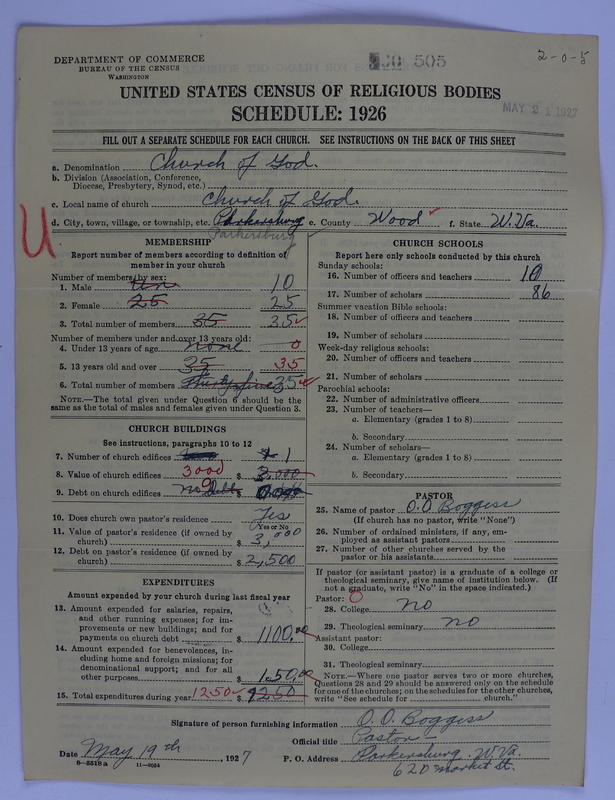 DEPARTMENT OF COMMERCE
BUREAU OF THE CENSUS
WASHINGTON
505
2-0-5
UNITED STATES CENSUS OF RELIGIOUS BODIES
SCHEDULE: 1926
MAY 21 1927
FILL OUT A SEPARATE SCHEDULE FOR EACH CHURCH. SEE INSTRUCTIONS ON THE BACK OF THIS SHEET
a. Denomination Church of God.
b. Division (Association, Conference, Diocese, Presbytery, Synod, etc.)
c. Local name of church Church of God.
d. City, town, village, or township, etc. Parkersburg e. County Wood f. State W.Va.
Parkersburg
U
MEMBERSHIP
Report number of members according to definition of member in your church
Number of members by sex:
1. Male 10
2. Female 25 25
3. Total number of members 35 35
Number of members under and over 13 years old:
4. Under 13 years of age none 0
5. 13 years old and over 35 35
6. Total number of members Thirty five 35
NOTE.—The total given under Question 6 should be the same as the total of males and females given under Question 3.
CHURCH BUILDINGS
See instructions, paragraphs 10 to 12
7. Number of church edifices 1
8. Value of church edifices 3000 $ 3,000
9. Debt on church edifices no Debt 0 $
10. Does church own pastor's residence Yes
(Yes or No)
11. Value of pastor's residence (if owned by church) $ 3,000
12. Debt on pastor's residence (if owned by church) $ 2,500
EXPENDITURES
Amount expended by your church during last fiscal year
13. Amount expended for salaries, repairs, and other running expenses; for improvements or new buildings; and for payments on church debt $ 1100.00
14. Amount expended for benevolences, including home and foreign missions; for denominational support; and for all other purposes $ 150.00
15. Total expenditures during year 1250 $ 1250
CHURCH SCHOOLS
Report here only schools conducted by this church
Sunday schools:
16. Number of officers and teachers 10
17. Number of scholars 86
Summer vacation Bible schools:
18. Number of officers and teachers
19. Number of scholars
Week-day religious schools:
20. Number of officers and teachers
21. Number of scholars
Parochial schools:
22. Number of administrative officers
23. Number of teachers—
a. Elementary (grades 1 to 8)
b. Secondary
24. Number of scholars—
a. Elementary (grades 1 to 8)
b. Secondary
PASTOR
25. Name of pastor O.O. Boggess
(If church has no pastor, write "None")
26. Number of ordained ministers, if any, employed as assistant pastors
27. Number of other churches served by the pastor or his assistants
If pastor (or assistant pastor) is a graduate of a college or theological seminary, give name of institution below. (If not a graduate, write "No" in the space indicated.)
Pastor: 0
28. College no
29. Theological seminary no
Assistant pastor:
30. College
31. Theological seminary
NOTE.—Where one pastor serves two or more churches, Questions 28 and 29 should be answered only on the schedule for one of the churches; on the schedules for the other churches, write "See schedule for church."
Signature of person furnishing information O.O. Boggess
Official title Pastor
Date May 19th, 1927 P. O. Address Parkersburg. W.Va.
620 Market St.
8—5518a 11—9054